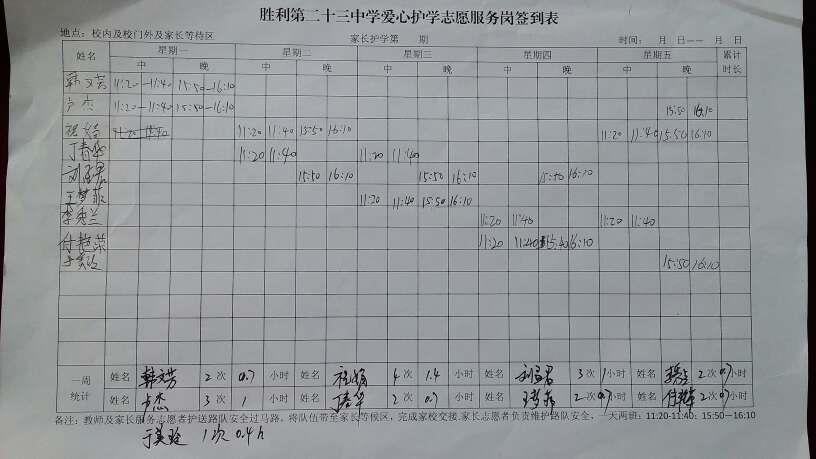 胜利第二十三中学爱心护学志愿服务岗签到表
地点：校内及校门外及家长等待区 家长护学第 期 时间： 月 日—— 月 日
姓名 星期一 星期二 星期三 星期四 星期五 累计时长
中 晚 中 晚 中 晚 中 晚 中 晚
韩文芳 11:20—11:40 15:50—16:10
卢杰 11:20—11:40 15:50—16:10 15:50 16:10
11:20 11:40 11:20 11:40 15:50 16:10 11:20 11:40 15:50 16:10
丁春华 11:20 11:40 11:20 11:40
15:50 16:10 15:50 16:10 15:50 16:10
王梦菲 11:20 11:40 15:50 16:10
李秀兰 11:20 11:40 11:20 11:40
11:20 11:40 15:40 16:10
于美玲 15:50 16:10
一周统计 姓名 韩文芳 2 次 0.7 小时 姓名 4 次 1.4 小时 姓名 3 次 1 小时 姓名 2 次 0.7 小时
姓名 卢杰 3 次 1 小时 姓名 2 次 0.7 小时 姓名 2 次 0.7 小时 姓名 2 次 0.7 小时
备注：教师及家长服务志愿者护送路队安全过马路，将队伍带至家长等候区，完成家校交接.家长志愿者负责维护路队安全，一天两班：11:20-11:40；15:50—16:10
于美玲 1次 0.4h